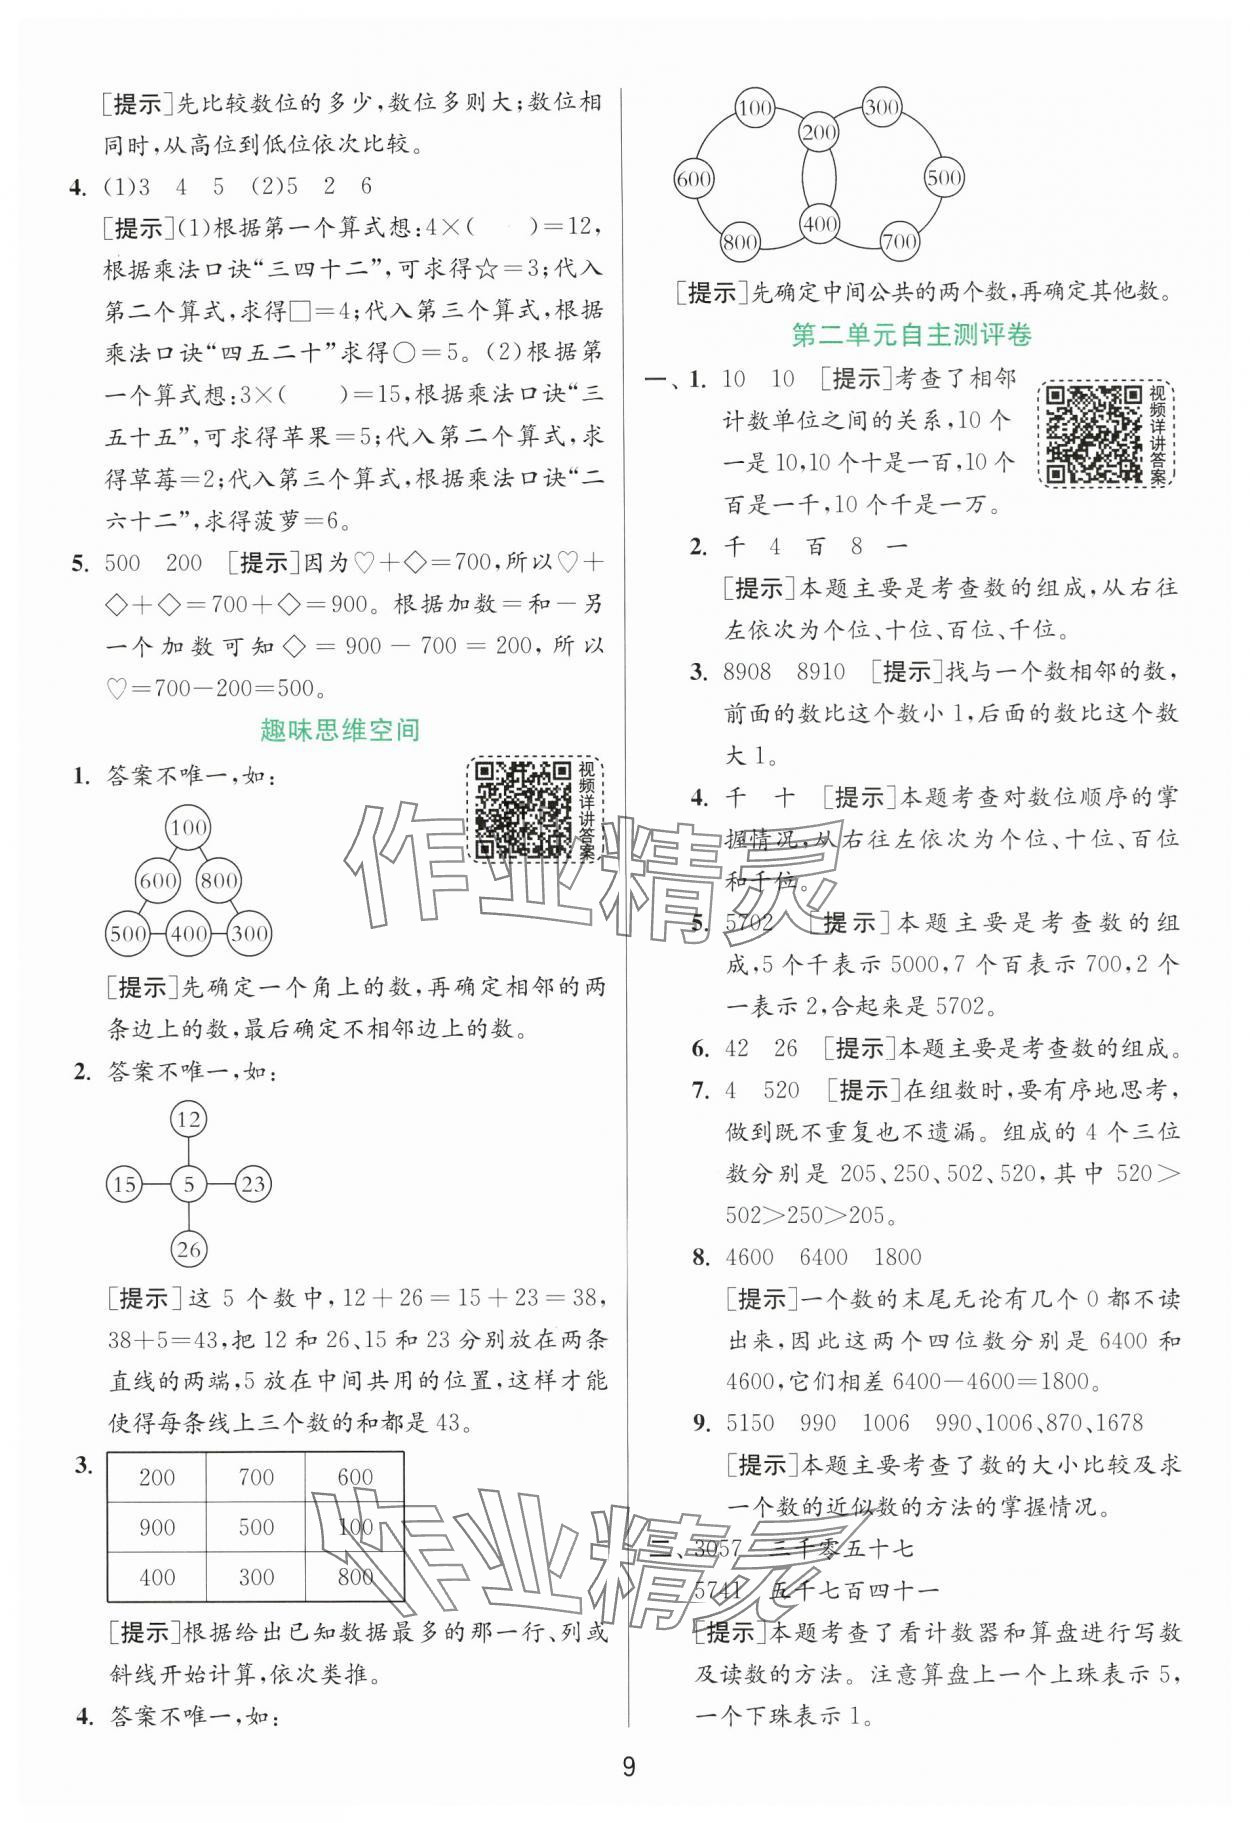 [提示]先比较数位的多少,数位多则大;数位相
同时,从高位到低位依次比较。
4. (1)3 4 5 (2)5 2 6
[提示](1)根据第一个算式想:4×( )=12,
根据乘法口诀“三四十二”,可求得☆=3;代入
第二个算式,求得□=4;代入第三个算式,根据
乘法口诀“四五二十”求得○=5。(2)根据第
一个算式想:3×( )=15,根据乘法口诀“三
五十五”,可求得苹果=5;代入第二个算式,求
得草莓=2;代入第三个算式,根据乘法口诀“二
六十二”,求得菠萝=6。
5. 500 200 [提示]因为♡+◇=700,所以♡+
◇+◇=700+◇=900。根据加数=和-另
一个加数可知◇=900-700=200,所以
♡=700-200=500。
趣味思维空间
1. 答案不唯一,如:
视频详讲答案
100
600 800
500 400 300
[提示]先确定一个角上的数,再确定相邻的两
条边上的数,最后确定不相邻边上的数。
2. 答案不唯一,如:
12
15 5 23
26
[提示]这5个数中,12+26=15+23=38,
38+5=43,把12和26、15和23分别放在两条
直线的两端,5放在中间共用的位置,这样才能
使得每条线上三个数的和都是43。
3.
200 700 600
900 500 100
400 300 800
[提示]根据给出已知数据最多的那一行、列或
斜线开始计算,依次类推。
4. 答案不唯一,如:
100 300
200
600 500
400
800 700
[提示]先确定中间公共的两个数,再确定其他数。
第二单元自主测评卷
一、1. 10 10 [提示]考查了相邻
计数单位之间的关系,10个
一是10,10个十是一百,10个
百是一千,10个千是一万。
视频详讲答案
2. 千 4 百 8 一
[提示]本题主要是考查数的组成,从右往
左依次为个位、十位、百位、千位。
3. 8908 8910 [提示]找与一个数相邻的数,
前面的数比这个数小1,后面的数比这个数
大1。
4. 千 十 [提示]本题考查对数位顺序的掌
握情况,从右往左依次为个位、十位、百位
和千位。
5. 5702 [提示]本题主要是考查数的组
成,5个千表示5000,7个百表示700,2个
一表示2,合起来是5702。
6. 42 26 [提示]本题主要是考查数的组成。
7. 4 520 [提示]在组数时,要有序地思考,
做到既不重复也不遗漏。组成的4个三位
数分别是205、250、502、520,其中520>
502>250>205。
8. 4600 6400 1800
[提示]一个数的末尾无论有几个0都不读
出来,因此这两个四位数分别是6400和
4600,它们相差6400-4600=1800。
9. 5150 990 1006 990、1006、870、1678
[提示]本题主要考查了数的大小比较及求
一个数的近似数的方法的掌握情况。
二、3057 三千零五十七
5741 五千七百四十一
[提示]本题考查了看计数器和算盘进行写数
及读数的方法。注意算盘上一个上珠表示5,
一个下珠表示1。
作业精灵
作业精灵
9